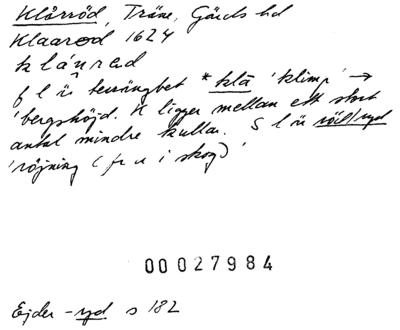 Klårröd, Träne, Gärds hd
Klaarød 1624
klånrad
f l är terrängbet *klå 'klimp' →
'bergshöjd. N ligger mellan ett stort
antal mindre kullar. S l är röd/ryd
'röjning (fr u i skog)'
00027984
Ejder -ryd s 182